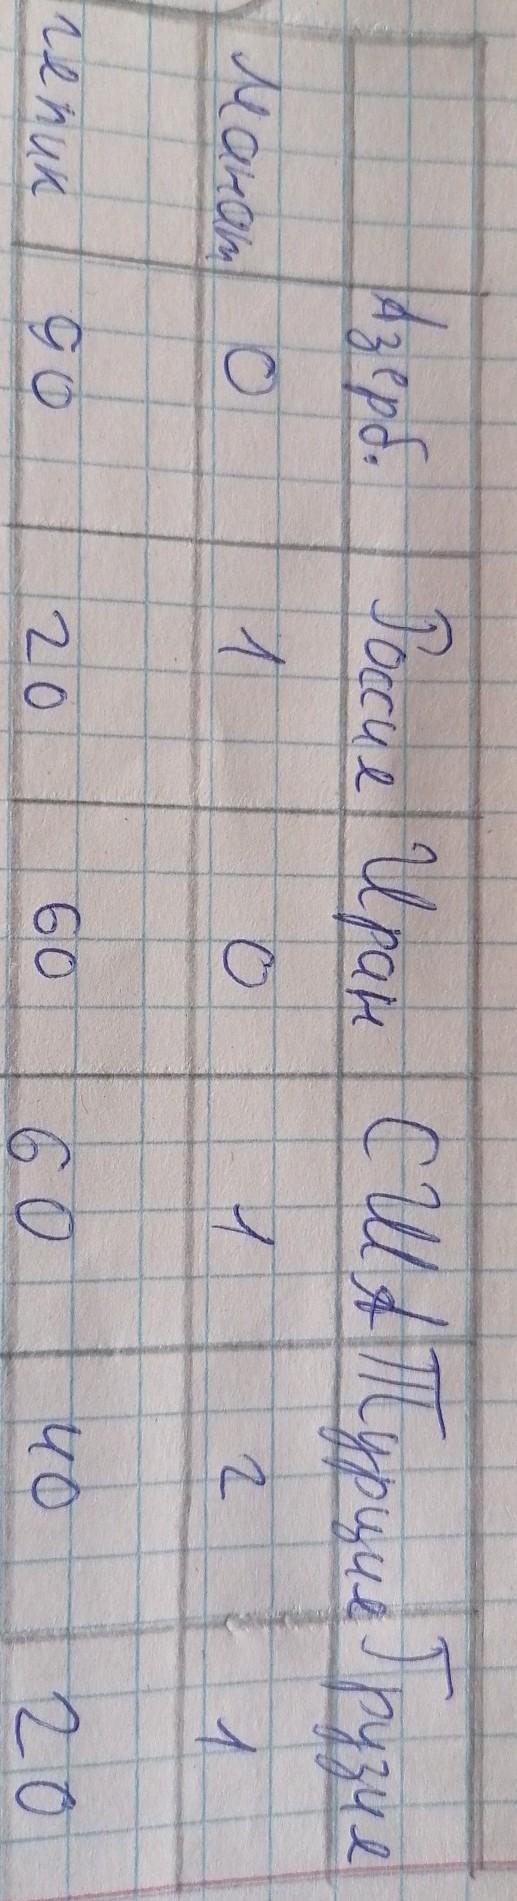 Азерб. Россия Иран США Турция Грузия
Манат 0 1 0 1 2 1
гяпик 90 20 60 60 40 20